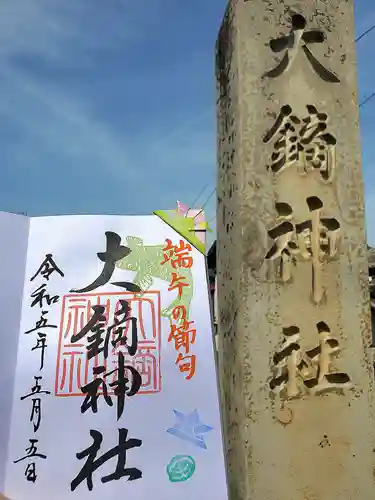 大鏑神社
端午の節句
大鏑神社
令和五年五月五日